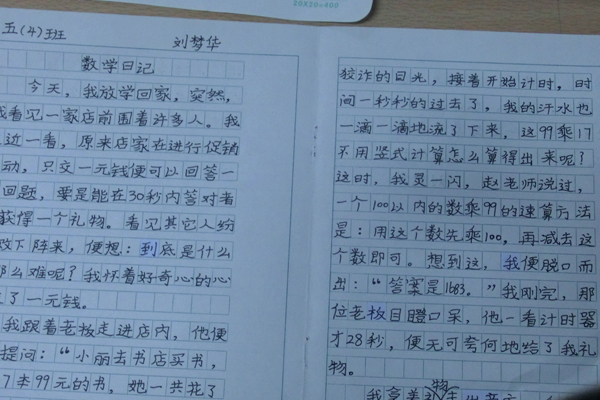 20X20=400
五(4)班
刘梦华
数学日记
今天，我放学回家，突然，
我看见一家店前围着许多人。我
近一看，原来店家在进行促销
动，只交一元钱便可以回答一
回题，要是能在30秒内答对者
获得一个礼物。看见其它人纷
败下阵来，便想：到底是什么
那么难呢？我怀着好奇心的心
了一元钱。
我跟着老板走进店内，他便
提问：“小丽去书店买书，
7本99元的书，她一共花了
狡诈的目光，接着开始计时，时
间一秒秒的过去了，我的汗水也
一滴一滴地流了下来，这99乘17
不用竖式计算怎么算得出来呢？
这时，我灵一闪，赵老师说过，
一个100以内的数乘99的速算方法
是：用这个数先乘100，再减去这
个数即可。想到这，我便脱口而
出：“答案是1683。”我刚完，那
位老板目瞪口呆，他一看计时器
才28秒，便无可奈何地给了我礼
物。